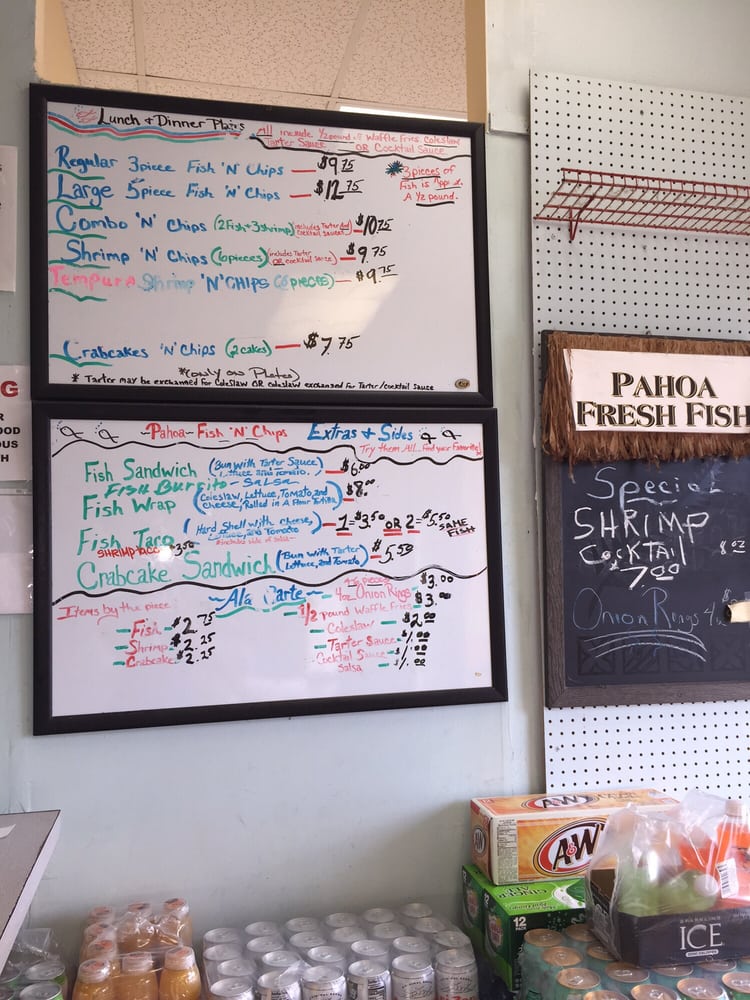 Lunch + Dinner Plates
All include 1/2 pound of Waffle Fries, Coleslaw
Tarter Sauce OR Cocktail Sauce
Regular 3piece Fish 'N' Chips — $9.75
Large 5piece Fish 'N' Chips — $12.75
*3 pieces of
Fish is
A 1/2 pound.
Combo 'N' Chips (2Fish+3shrimp) includes Tarter And Cocktail Sauces — $10.75
Shrimp 'N' Chips (6pieces) includes Tarter OR cocktail sauce — $9.75
Tempura Shrimp 'N' CHIPS (6 pieces) — $9.75
Crabcakes 'N' Chips (2 cakes) — $7.75
*(only on Plates)
* Tarter may be exchanned for Coleslaw OR coleslaw exchansed for Tarter/cocktail sauce
~Pahoa~Fish 'N' Chips Extras & Sides
Try them All...Find your Favorite!
Fish Sandwich (Bun with Tarter Sauce, Lettuce and Tomato) — $6.00
Fish Burrito - Salsa
Fish Wrap (Coleslaw, Lettuce, Tomato, and Cheese, Rolled in A Flour Tortilla) $8.00
Fish Taco (Hard Shell with Cheese, and Tomato — 1=$3.50 OR 2=$5.50 SAME FISH
*includes side of salsa~
SHRIMP taco 3.50
Crabcake Sandwich (Bun with Tarter Lettuce, and Tomato) $5.50
~Ala Carte~
Items by the piece
—Fish $2.75
—Shrimp $2.25
—Crabcake $2.25
4-6 pieces
— 4oz Onion Rings $3.00
— 1/2 pound Waffle Fries — $3.00
— Coleslaw — $2.00
— Tarter Sauce — $1.00
— Cocktail Sauce — $1.00
Salsa
G
R
OOD
OUS
H
PAHOA
FRESH FISH
Special
SHRIMP
COCKTAIL 8 oz
$7.00
Onion Rings 4
A&W
A&W
GINGER ALE
12
ICE